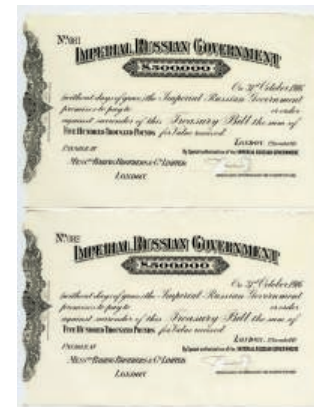 IMPERIAL RUSSIAN GOVERNMENT
£500000
On 31st October 1916
without days of grace, the Imperial Russian Government
promises to pay to
or order
against surrender of this Treasury Bill the sum of
FIVE HUNDRED THOUSAND POUNDS for Value received.
LONDON,
PAYABLE AT
By Special authorisation of the IMPERIAL RUSSIAN GOVERNMENT.
MESSRS BARING BROTHERS & CO LIMITED
LONDON.
IMPERIAL RUSSIAN GOVERNMENT
£500000
On 31st October 1916
without days of grace, the Imperial Russian Government
promises to pay to
or order
against surrender of this Treasury Bill the sum of
FIVE HUNDRED THOUSAND POUNDS for Value received.
LONDON,
PAYABLE AT
By Special authorisation of the IMPERIAL RUSSIAN GOVERNMENT.
MESSRS BARING BROTHERS & CO LIMITED
LONDON.